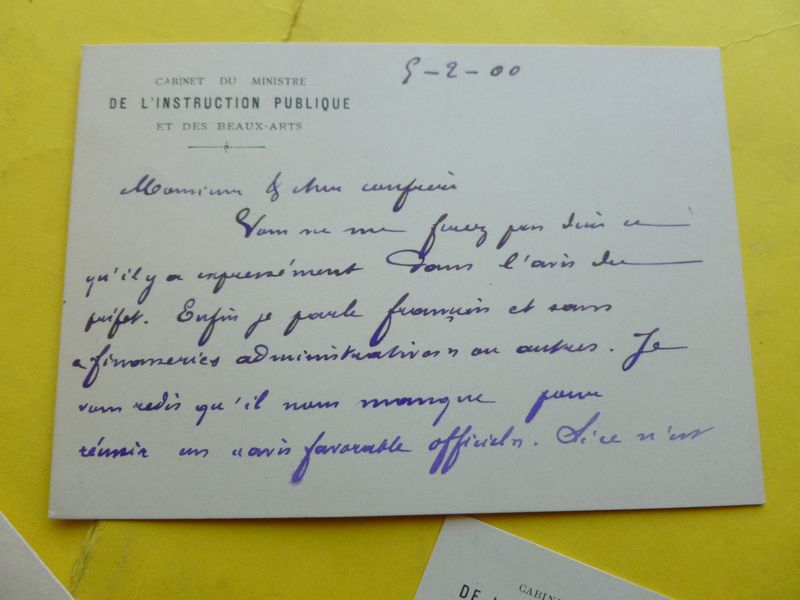 CABINET DU MINISTRE
DE L'INSTRUCTION PUBLIQUE
ET DES BEAUX-ARTS
5-2-00
Monsieur & cher confrère
Vous ne me ferez pas dire ce
qu'il y a expressément dans l'avis du
préfet. Enfin je parle français et sans
« finasseries administratives » ou autres. Je
vous redis qu'il nous manque pour
réussir un « avis favorable officiel ». Si ce n'est
CABIN
DE